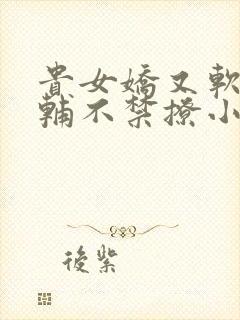 貴女嬌又軟
輔不禁撩小
後紫